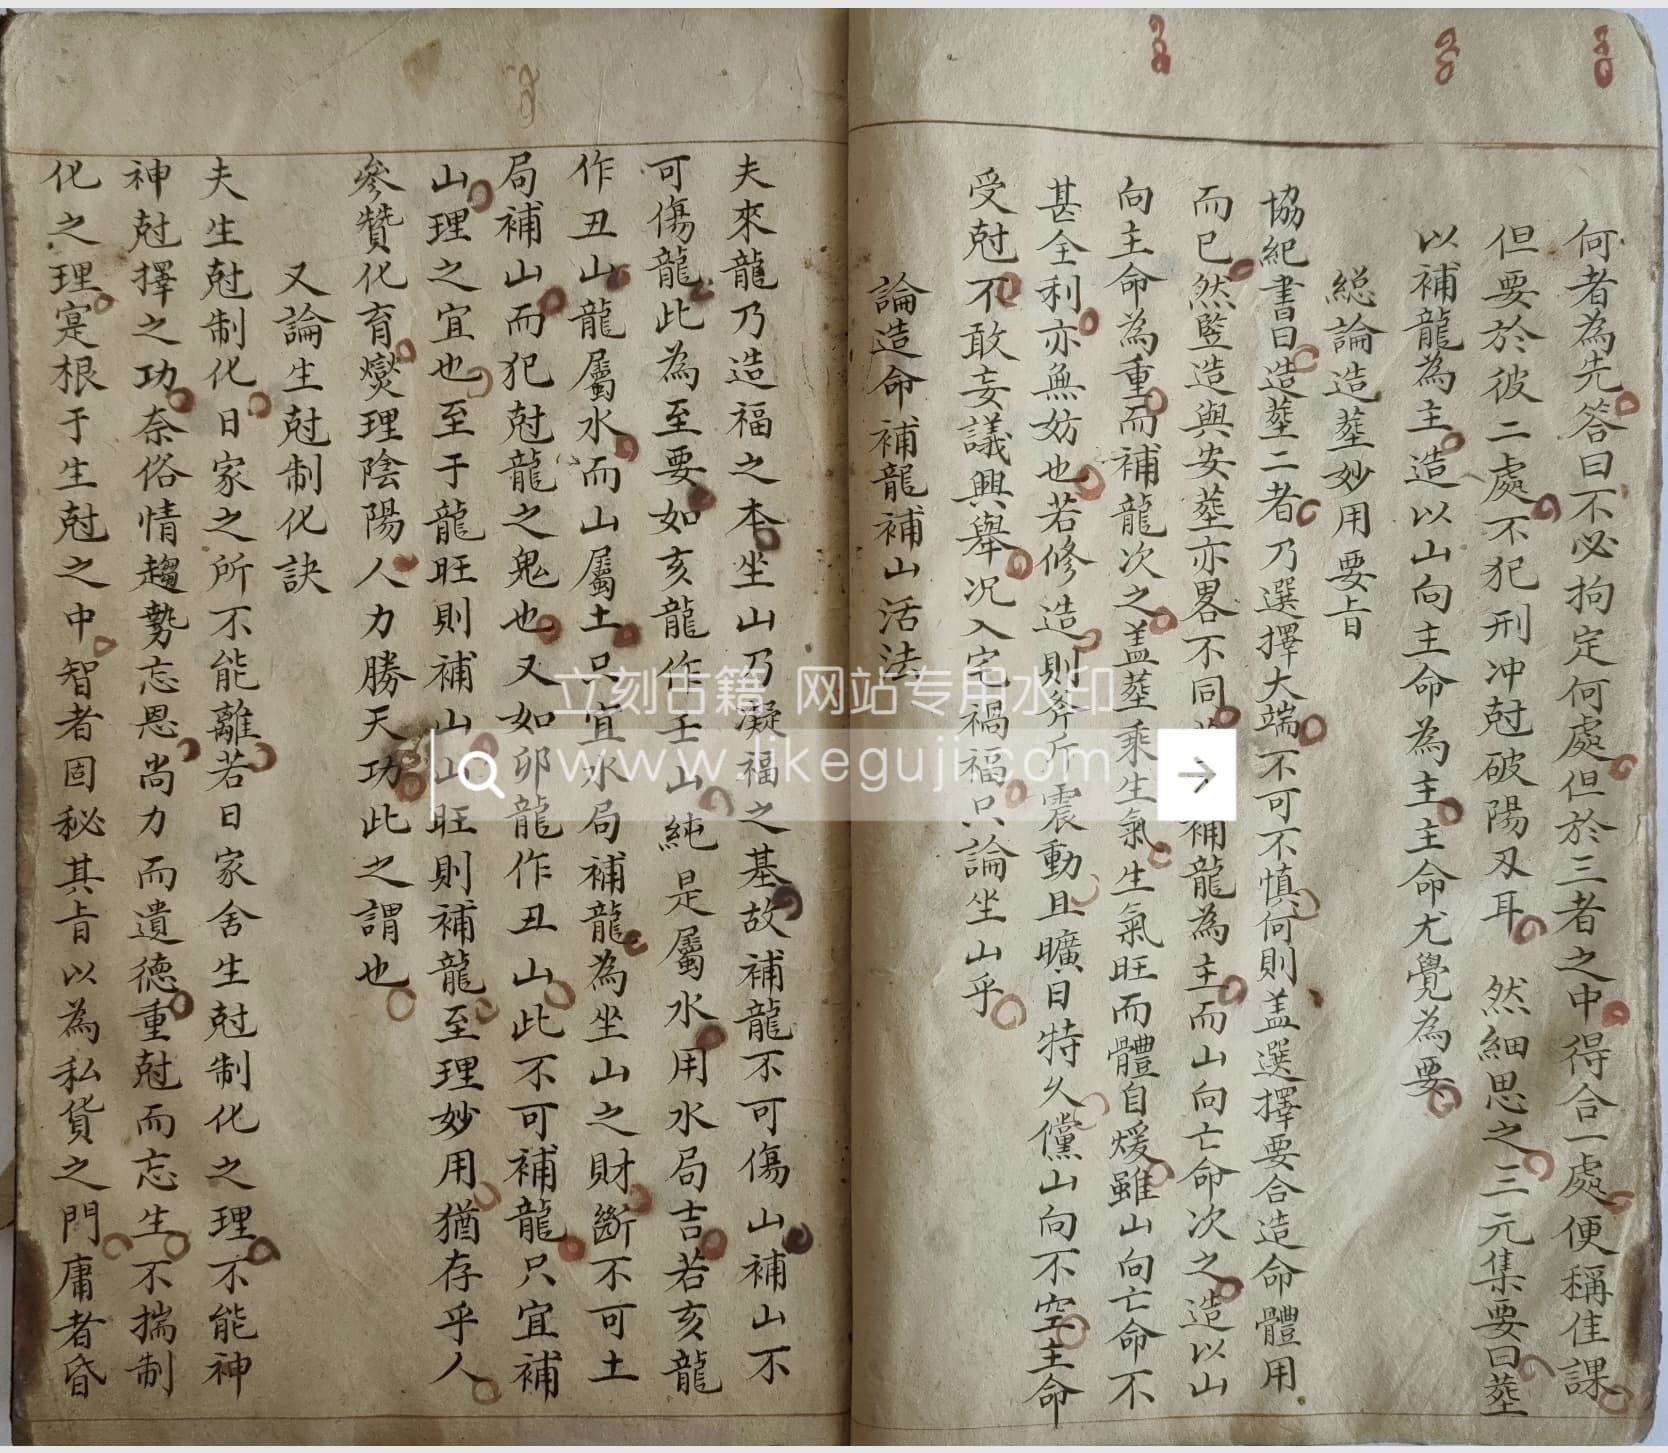 何者為先答曰不必拘定何處但於三者之中得合一處便稱佳課
但要於彼二處不犯刑冲尅破陽刄耳　然細思之三元集要曰塟
以補龍為主造以山向主命為主主命尤覺為要
総論造塟妙用要㫖
協紀書曰造塟二者乃選擇大端不可不慎何則盖選擇要合造命體用
而已然監造與安塟亦畧不同補龍為主而山向亡命次之造以山
向主命為重而補龍次之盖塟乘生氣生氣旺而體自煖雖山向亡命不
甚全利亦無妨也若修造則斧斤震動且曠日特久儻山向不空主命
受尅不敢妄議興舉况入宅禍福只論坐山乎
論造命補龍補山活法
夫來龍乃造福之本坐山乃凝福之基故補龍不可傷山補山不
可傷龍此為至要如亥龍作壬山純是屬水用水局吉若亥龍
作丑山龍屬水而山屬土只宜水局補龍為坐山之財斷不可土
局補山而犯尅龍之鬼也又如卯龍作丑山此不可補龍只宜補
山理之宜也至于龍旺則補山山旺則補龍至理妙用猶存乎人
參贊化育燮理陰陽人力勝天功此之謂也
又論生尅制化訣
夫生尅制化日家之所不能離若日家舍生尅制化之理不能神
神尅擇之功奈俗情趨勢忘恩尚力而遺德重尅而忘生不揣制
化之理寔根于生尅之中智者固秘其㫖以為私貨之門庸者昏
立刻古籍 网站专用水印
www.likeguji.com